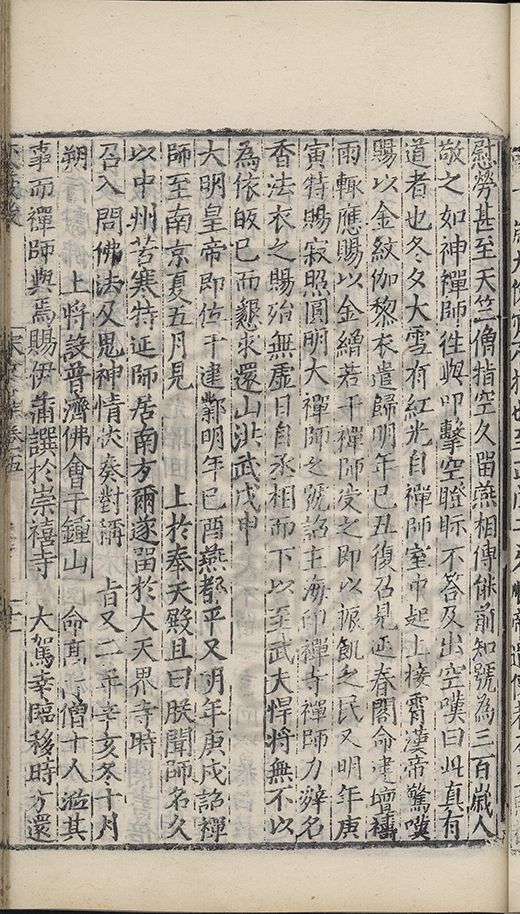 慰勞甚至天竺僧指空久留燕相傳能前知號為三百歲人
敬之如神禪師往與叩擊空瞪眂不答及出空嘆曰此真有
道者也冬夕大雪有紅光自禪師室中起上接霄漢帝驚嘆
賜以金紋伽黎衣遣歸明年己丑復召見延春閣命建壇禱
雨輒應賜以金繒若干禪師受之即以振飢乏民又明年庚
寅特賜寂照圓明大禪師之號詔主海印禪寺禪師力辭名
香法衣之賜殆無虛日自丞相而下以至武夫悍將無不以
為依皈已而懇求還山洪武戊申
大明皇帝即位于建鄴明年己酉燕都平又明年庚戌詔禪
師至南京夏五月見　上於奉天殿且曰朕聞師名久
以中州苦寒特延師居南方爾遂留於大天界寺時
召入問佛法及鬼神情狀奏對稱　旨又二年辛亥冬十月
朔　上將設普濟佛會于鍾山　命高行僧十人蒞其
事而禪師與焉賜伊蒲饌於崇禧寺　大駕幸臨移時方還